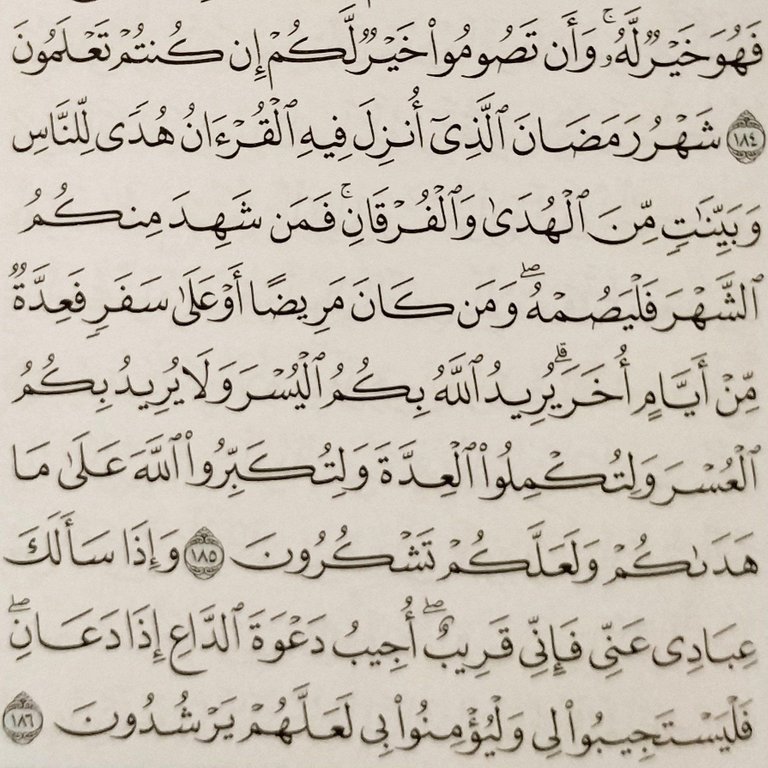 فَهُوَ خَيْرٌ لَّهُۥ ۚ وَأَن تَصُومُوا۟ خَيْرٌ لَّكُمْ إِن كُنتُمْ تَعْلَمُونَ
١٨٤ شَهْرُ رَمَضَانَ ٱلَّذِىٓ أُنزِلَ فِيهِ ٱلْقُرْءَانُ هُدًى لِّلنَّاسِ
وَبَيِّنَـٰتٍ مِّنَ ٱلْهُدَىٰ وَٱلْفُرْقَانِ ۚ فَمَن شَهِدَ مِنكُمُ
ٱلشَّهْرَ فَلْيَصُمْهُ ۖ وَمَن كَانَ مَرِيضًا أَوْ عَلَىٰ سَفَرٍ فَعِدَّةٌ
مِّنْ أَيَّامٍ أُخَرَ ۗ يُرِيدُ ٱللَّهُ بِكُمُ ٱلْيُسْرَ وَلَا يُرِيدُ بِكُمُ
ٱلْعُسْرَ وَلِتُكْمِلُوا۟ ٱلْعِدَّةَ وَلِتُكَبِّرُوا۟ ٱللَّهَ عَلَىٰ مَا
هَدَىٰكُمْ وَلَعَلَّكُمْ تَشْكُرُونَ ١٨٥ وَإِذَا سَأَلَكَ
عِبَادِى عَنِّى فَإِنِّى قَرِيبٌ ۖ أُجِيبُ دَعْوَةَ ٱلدَّاعِ إِذَا دَعَانِ ۖ
فَلْيَسْتَجِيبُوا۟ لِى وَلْيُؤْمِنُوا۟ بِى لَعَلَّهُمْ يَرْشُدُونَ ١٨٦